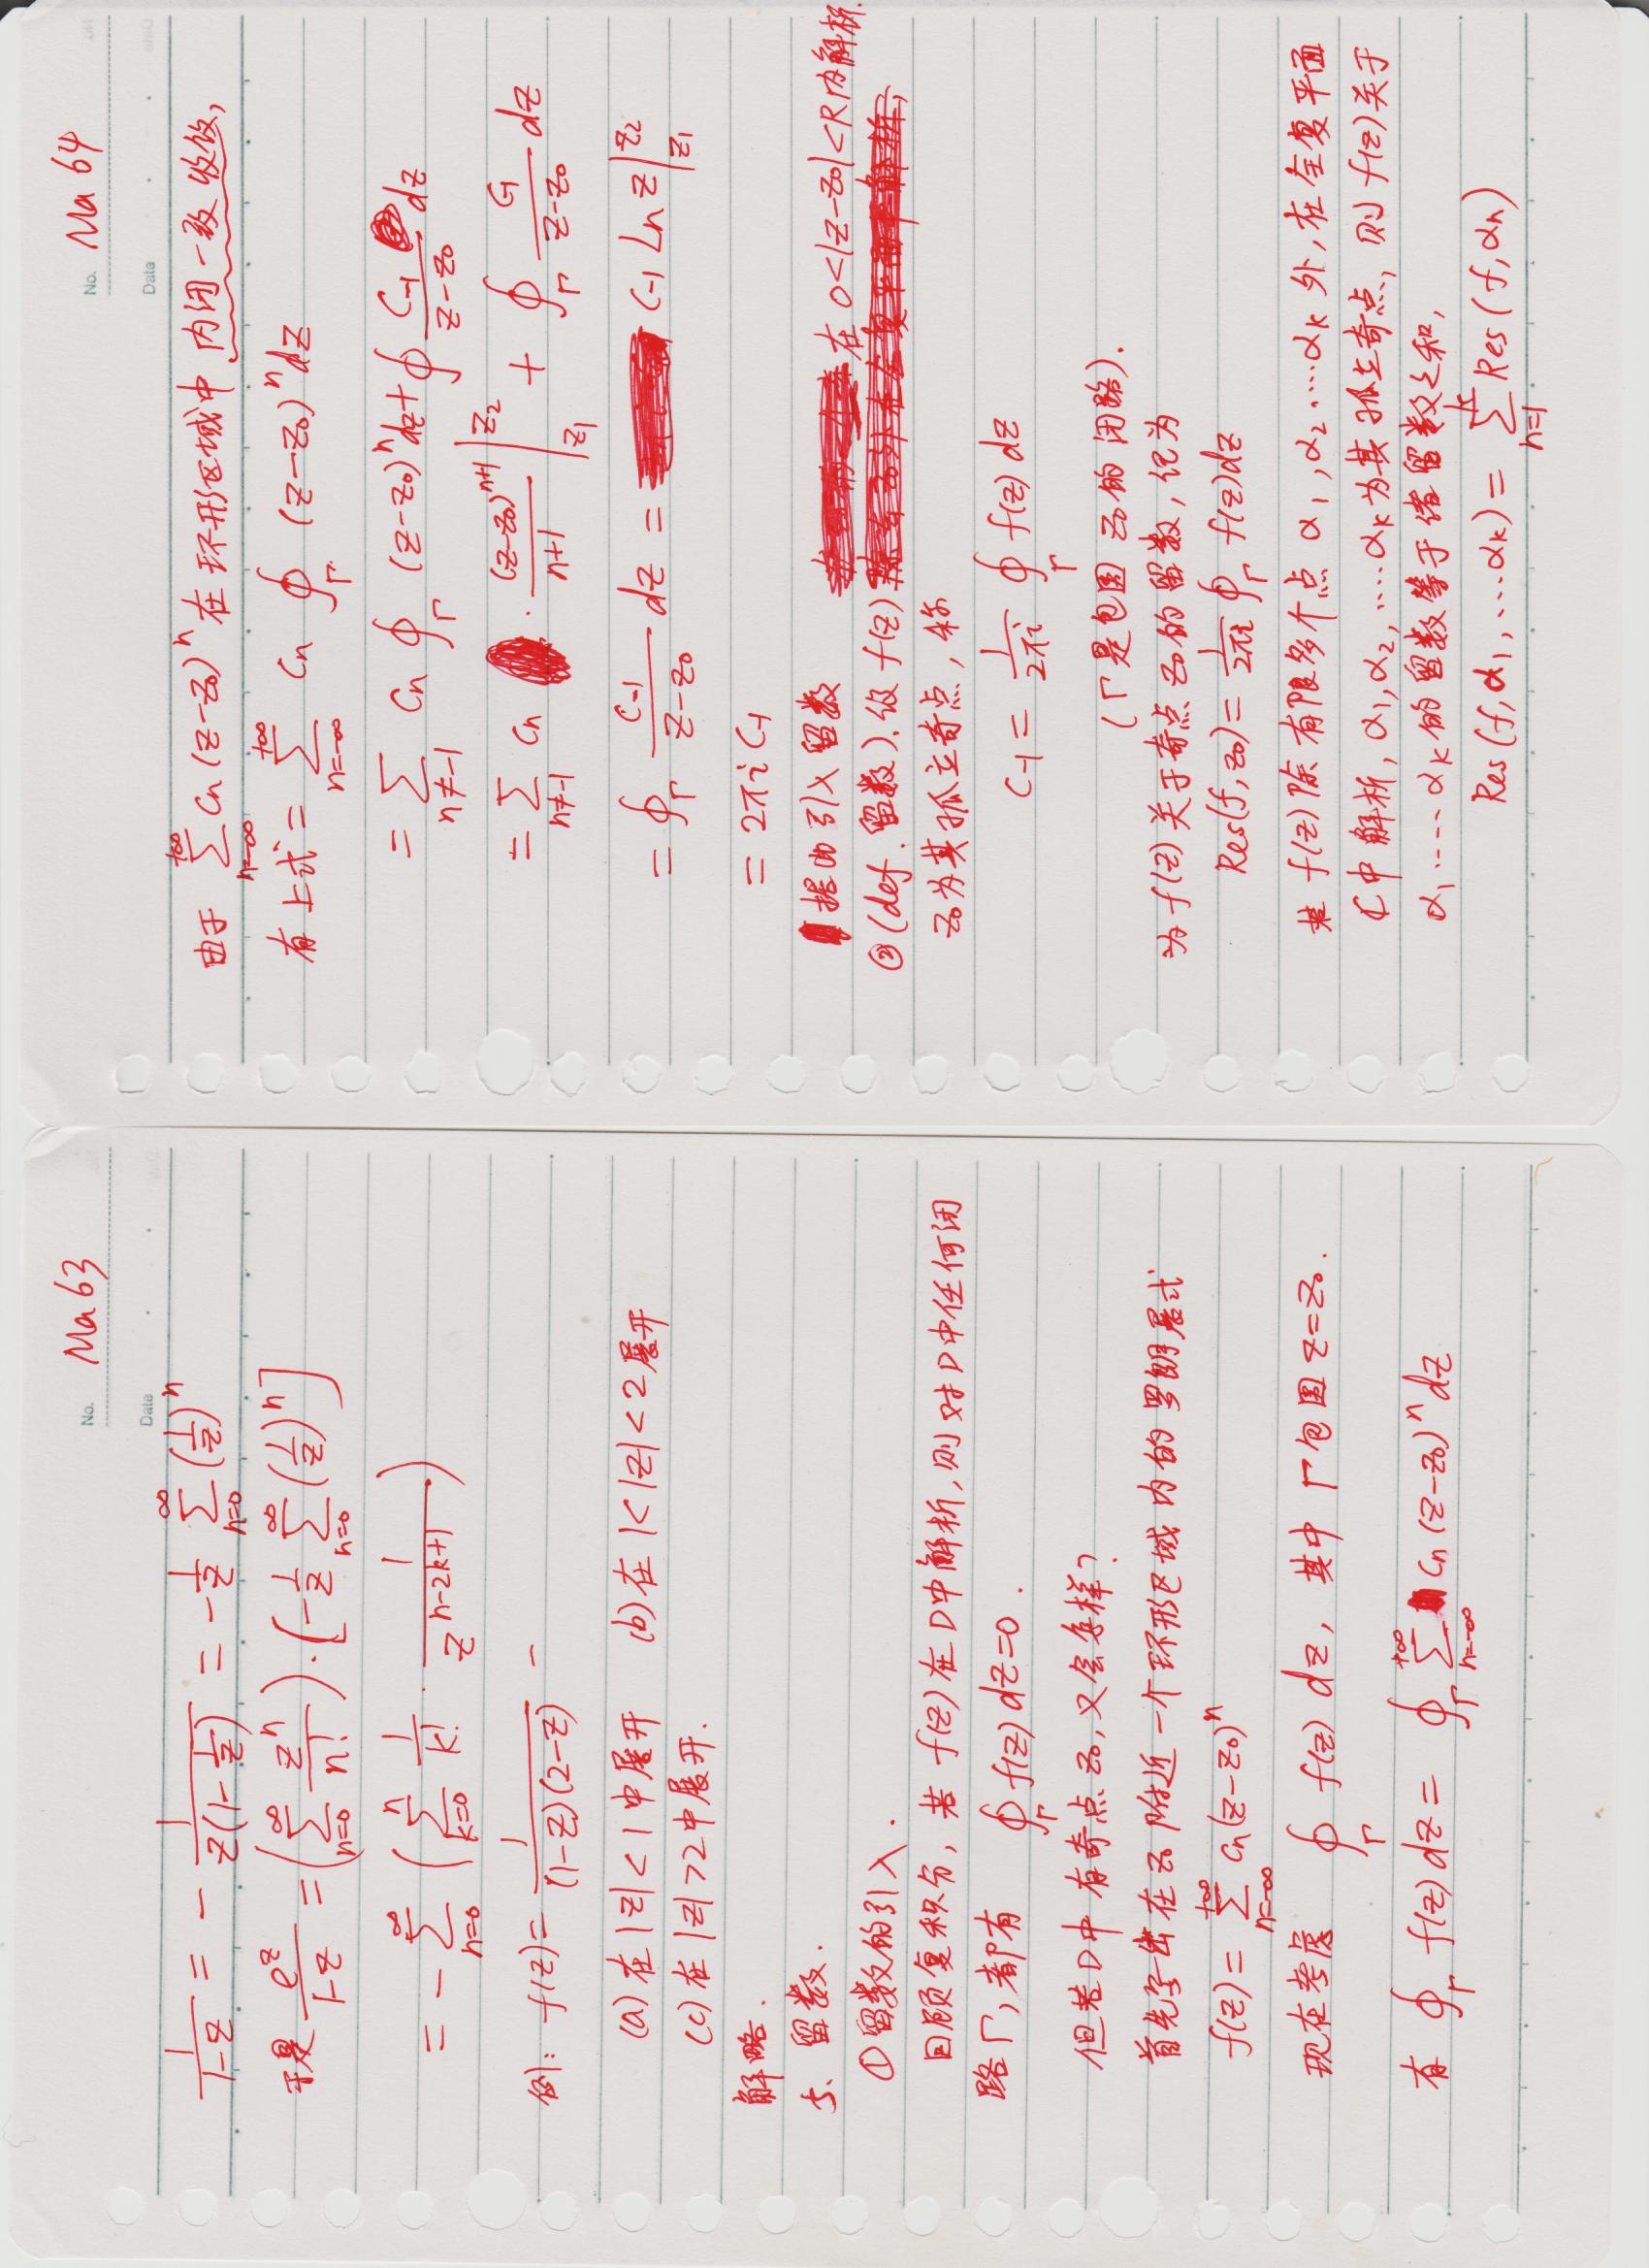 No. Ma 63
Date
1/(1-z) = - 1/(z(1-1/z)) = -1/z ∑_{n=0}^{∞} (1/z)^n
于是 e^z/(1-z) = (∑_{n=0}^{∞} z^n/n!)·[-1/z ∑_{n=0}^{∞} (1/z)^n]
= -∑_{n=0}^{∞} (∑_{k=0}^{n} 1/k! · 1/z^{n-2k+1})
例: f(z)= 1/((1-z)(2-z)) -
(a) 在 |z|<1 中展开 (b) 在 1<|z|<2 展开
(c) 在 |z|>2 中展开.
解略.
5、留数.
① 留数的引入.
回顾复积分, 若 f(z) 在 D 中解析, 则对 D 中任何闭
路 Γ, 都有 ∮_Γ f(z) dz=0.
但若 D 中 有奇点 z₀, 又会怎样?
首先写出在 z₀ 附近一个环形区域内的罗朗展式
f(z)= ∑_{n=-∞}^{+∞} c_n(z-z₀)^n
现在考虑 ∮_Γ f(z) dz, 其中 Γ 包围 z=z₀.
有 ∮_Γ f(z) dz = ∮_Γ ∑_{n=-∞}^{+∞} c_n (z-z₀)^n dz
No. Ma 64
Date
由于 ∑_{n=-∞}^{+∞} c_n (z-z₀)^n 在环形区域中 内闭一致收敛,
有上式 = ∑_{n=-∞}^{+∞} c_n ∮_Γ (z-z₀)^n dz
= ∑_{n≠-1} c_n ∮_Γ (z-z₀)^n dz + ∮ c_{-1}/(z-z₀) dz
= ∑_{n≠-1} c_n · (z-z₀)^{n+1}/(n+1) |_{z₁}^{z₂} + ∮_Γ c_{-1}/(z-z₀) dz
= ∮_Γ c_{-1}/(z-z₀) dz = c_{-1} Ln z |_{z₁}^{z₂}
= 2πi c_{-1}
据此引入留数
在 0<|z-z₀|<R 内解析.
② (def. 留数). 设 f(z)
z₀ 为其孤立奇点, 称
c_{-1} = 1/(2πi) ∮_Γ f(z) dz
(Γ 是包围 z₀ 的闭路).
为 f(z) 关于奇点 z₀ 的留数, 记为
Res(f, z₀) = 1/(2πi) ∮_Γ f(z)dz
若 f(z) 除有限多个点 α₁, α₂ .... α_k 外, 在全复平面
ℂ 中解析, α₁, α₂, .... α_k 为其孤立奇点, 则 f(z) 关于
α₁ .... α_k 的留数等于诸留数之和,
Res(f, α₁, ... α_k) = ∑_{n=1}^{k} Res(f, α_n)